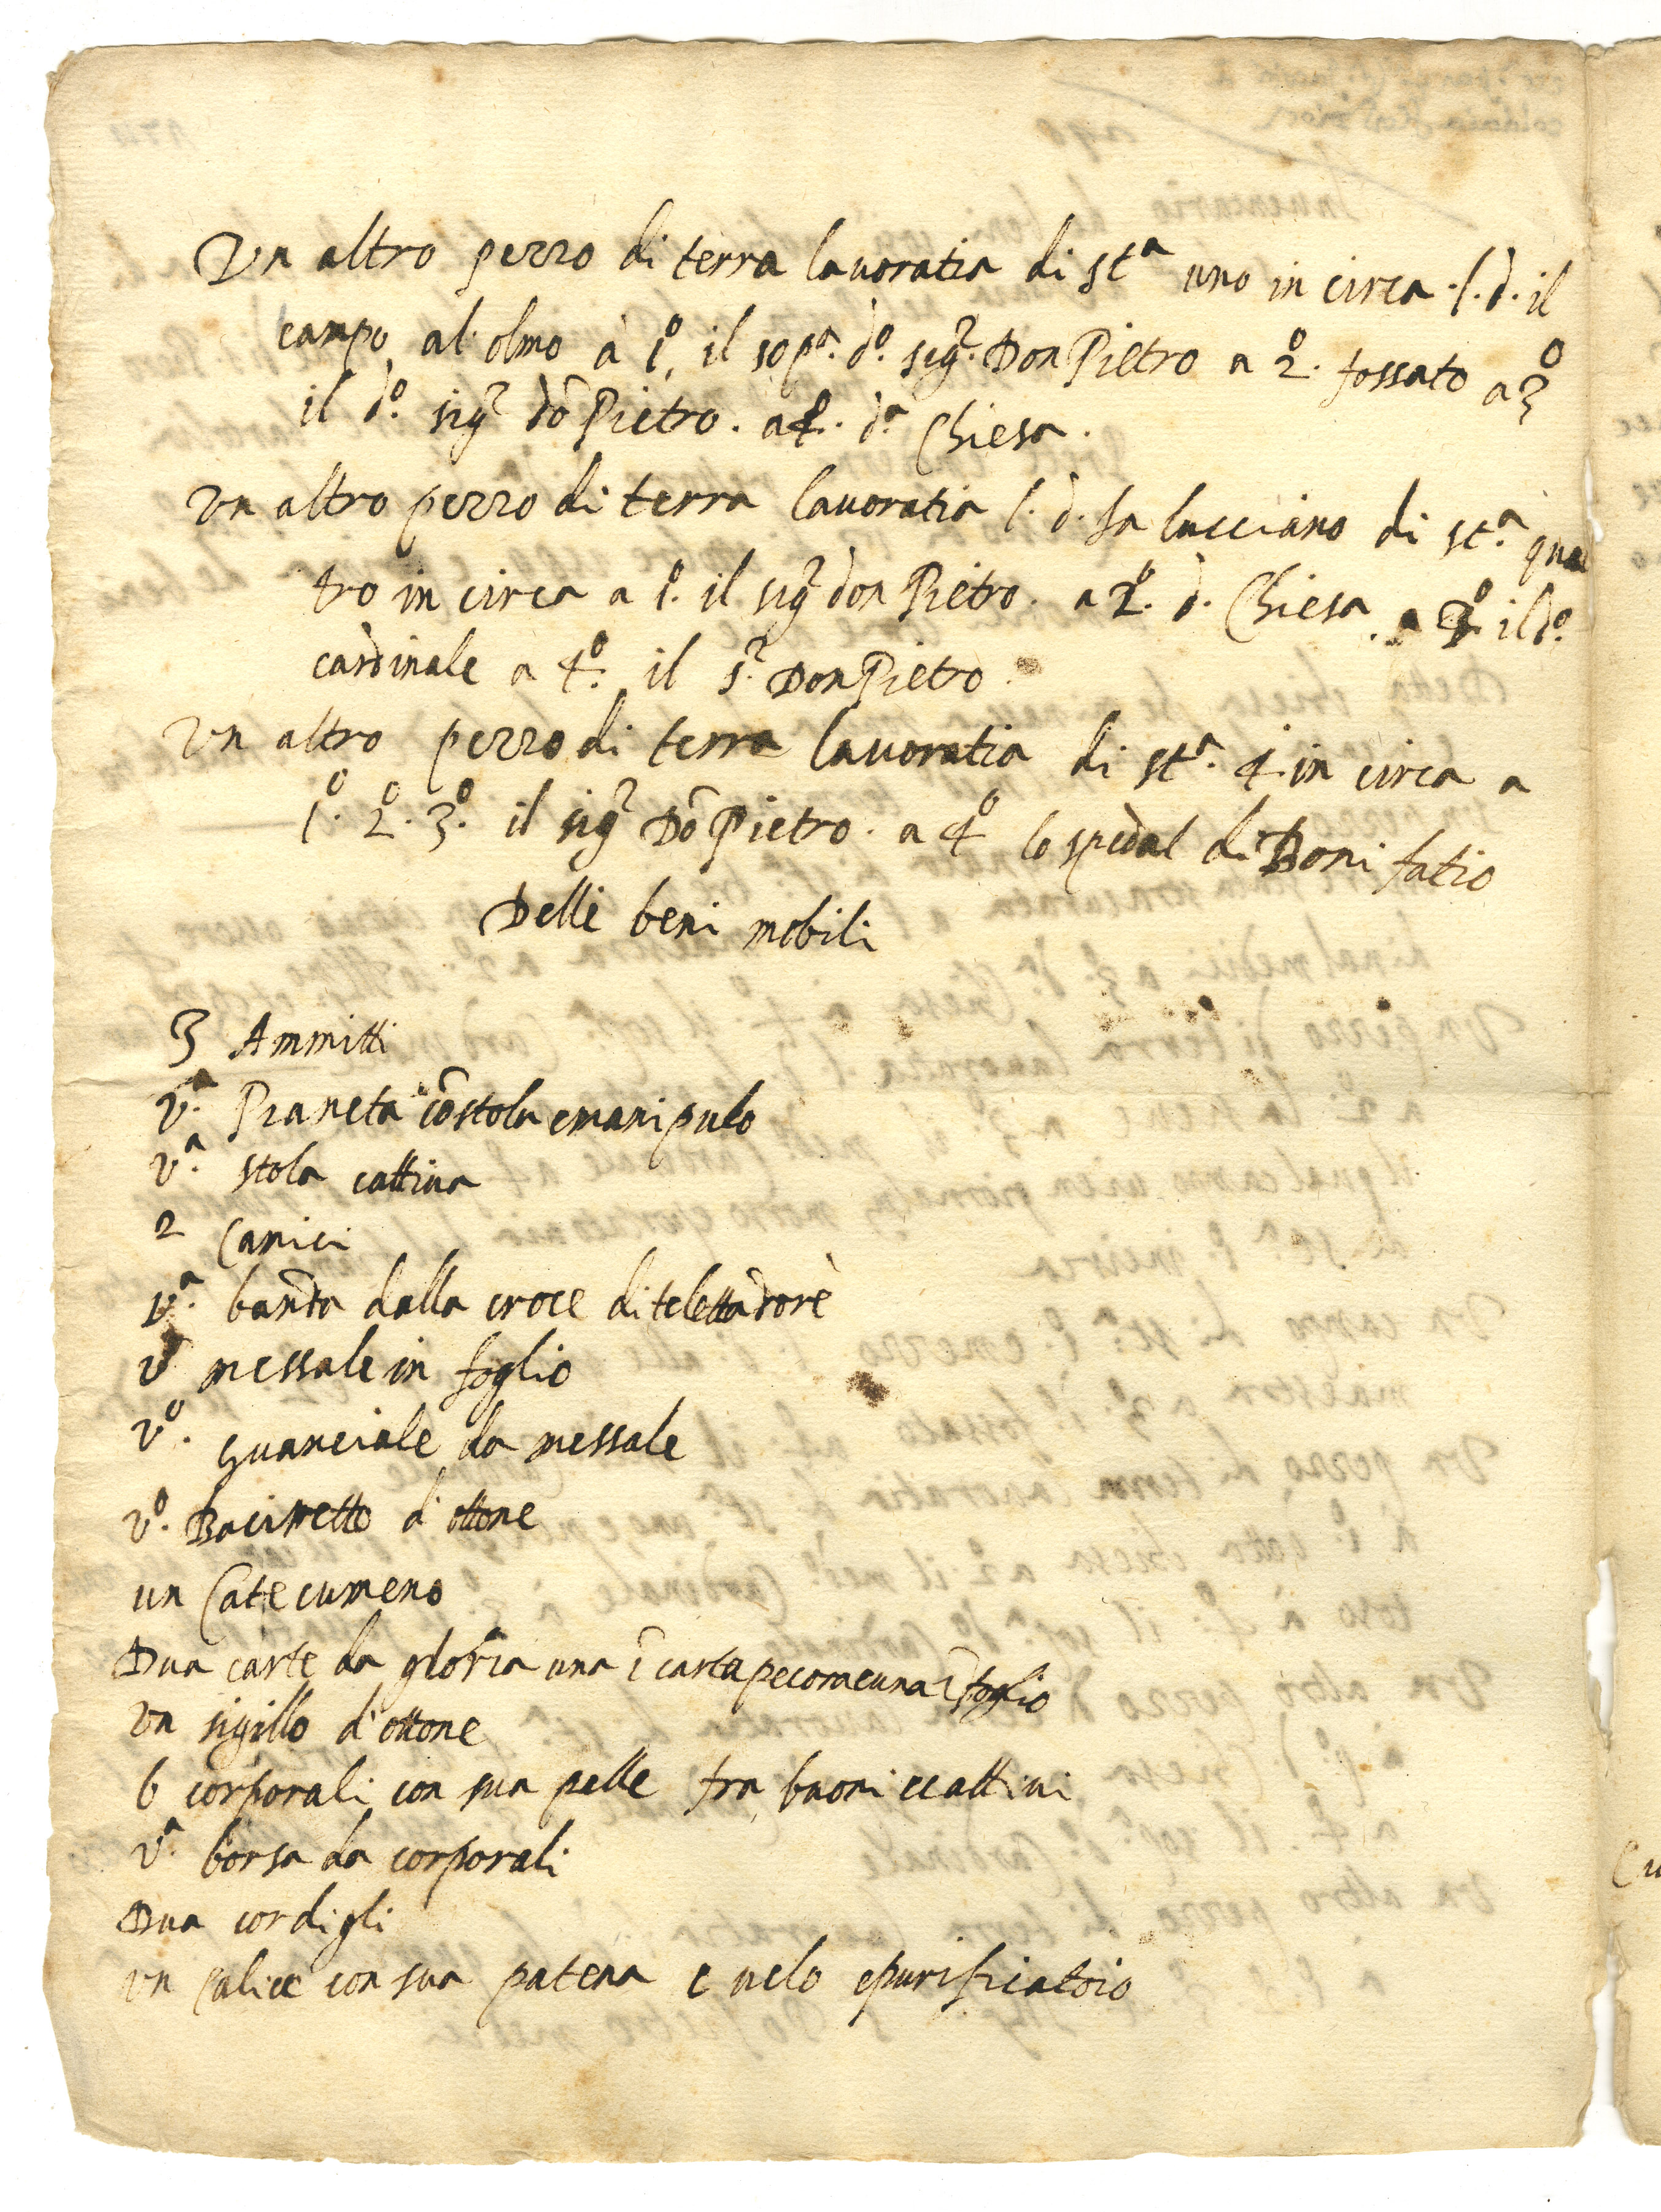 Vn altro pezzo di terra lauoratia di st.ª uno in circa .l.d. il
campo al' olmo à 1º. il sop.ª dº. sig.r Don Pietro a 2º. fossato a 3º
il dº. sig.r dõ Pietro. a 4º. d.ª Chiesa.
Vn altro pezzo di terra lauoratia l. d. sa lucciano di st.ª quat
tro in circa a 1º. il sig.r don Pietro. a 2º. d. Chiesa. a 3º il dº.
cardinale a 4º. il S.r Don Pietro
Vn altro pezzo di terra lauoratia di st.ª 4. in circa a
1º. 2º. 3º. il sig.r Dõ Pietro. a 4º lo spedal di Boni fatio
Delli beni mobili
3 Ammitti
V.ª Pianeta cõ stola e manipulo
V.ª stola cattiua
2 Camici
V.ª banda dalla croce di teletta d'ore
Vº messale in foglio
Vº. guanciale da messale
Vº. Bacinetto d'ottone
un Catecumeno
Dua carte da gloria una ĩ carta pecora e una ĩ foglio
Vn sigillo d'ottone
6 corporali con sua pelle fra buoni e cattiui
V.ª borsa da corporali
Dua cordigli
Vn Calice con sua patena e uelo e purificatoio